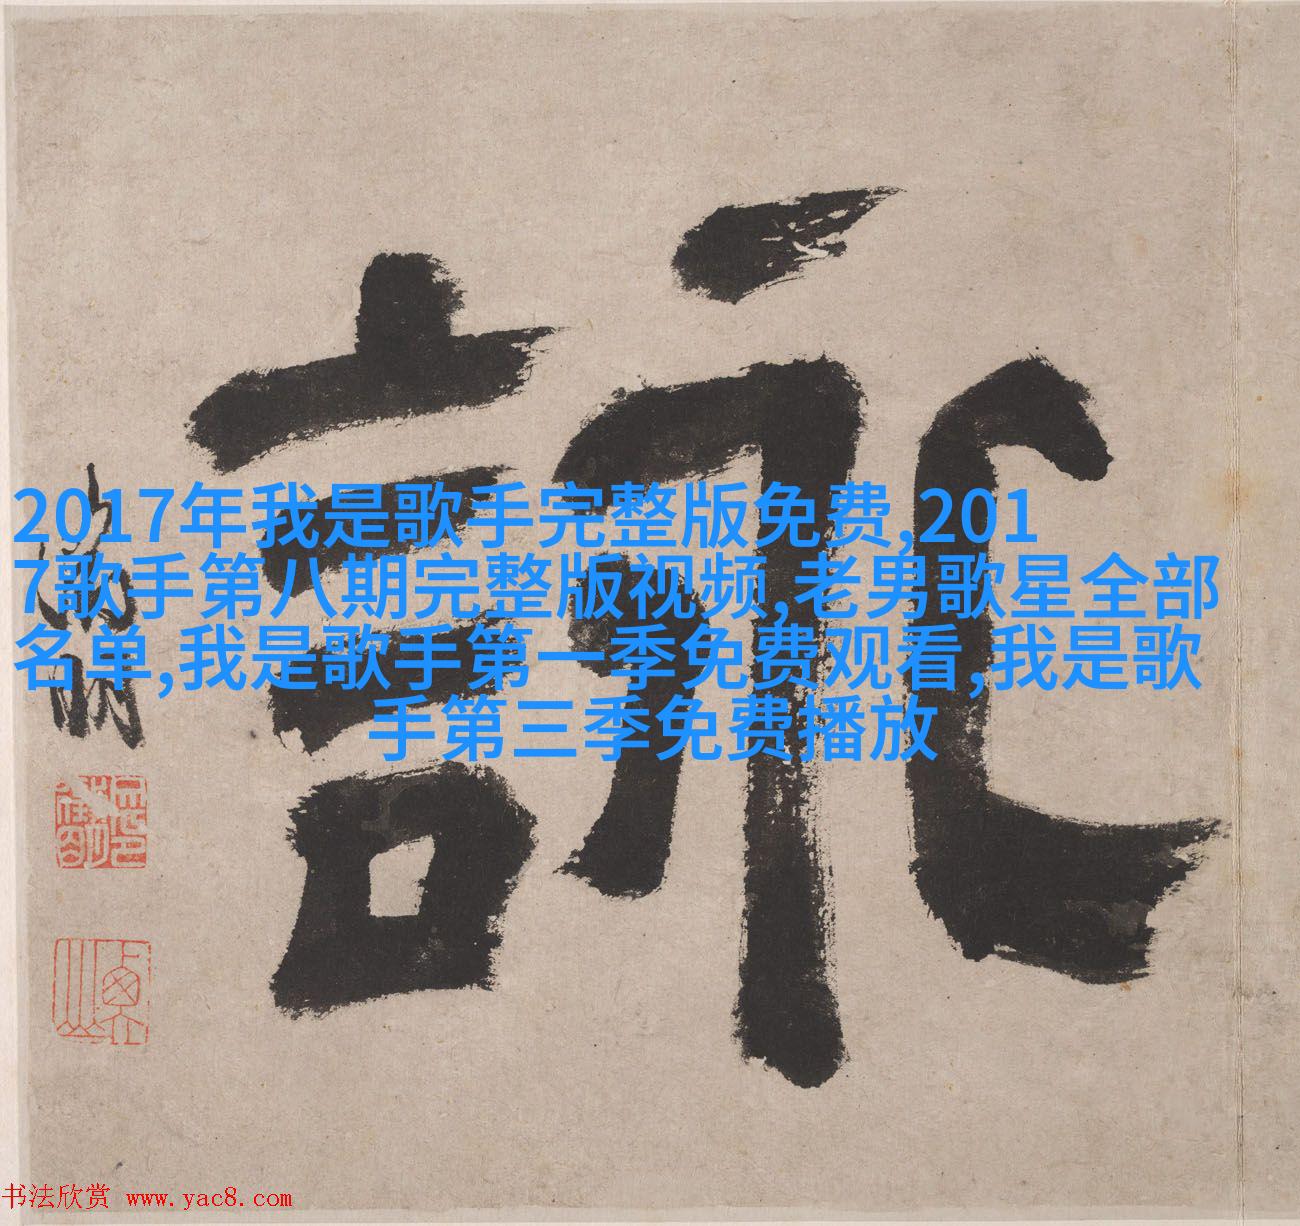 詠
2017年我是歌手完整版免费,201
7歌手第八期完整版视频,老男歌星全部
名单,我是歌手第一季免费观看,我是歌
手第三季免费播放
书法欣赏 www.yac8.com